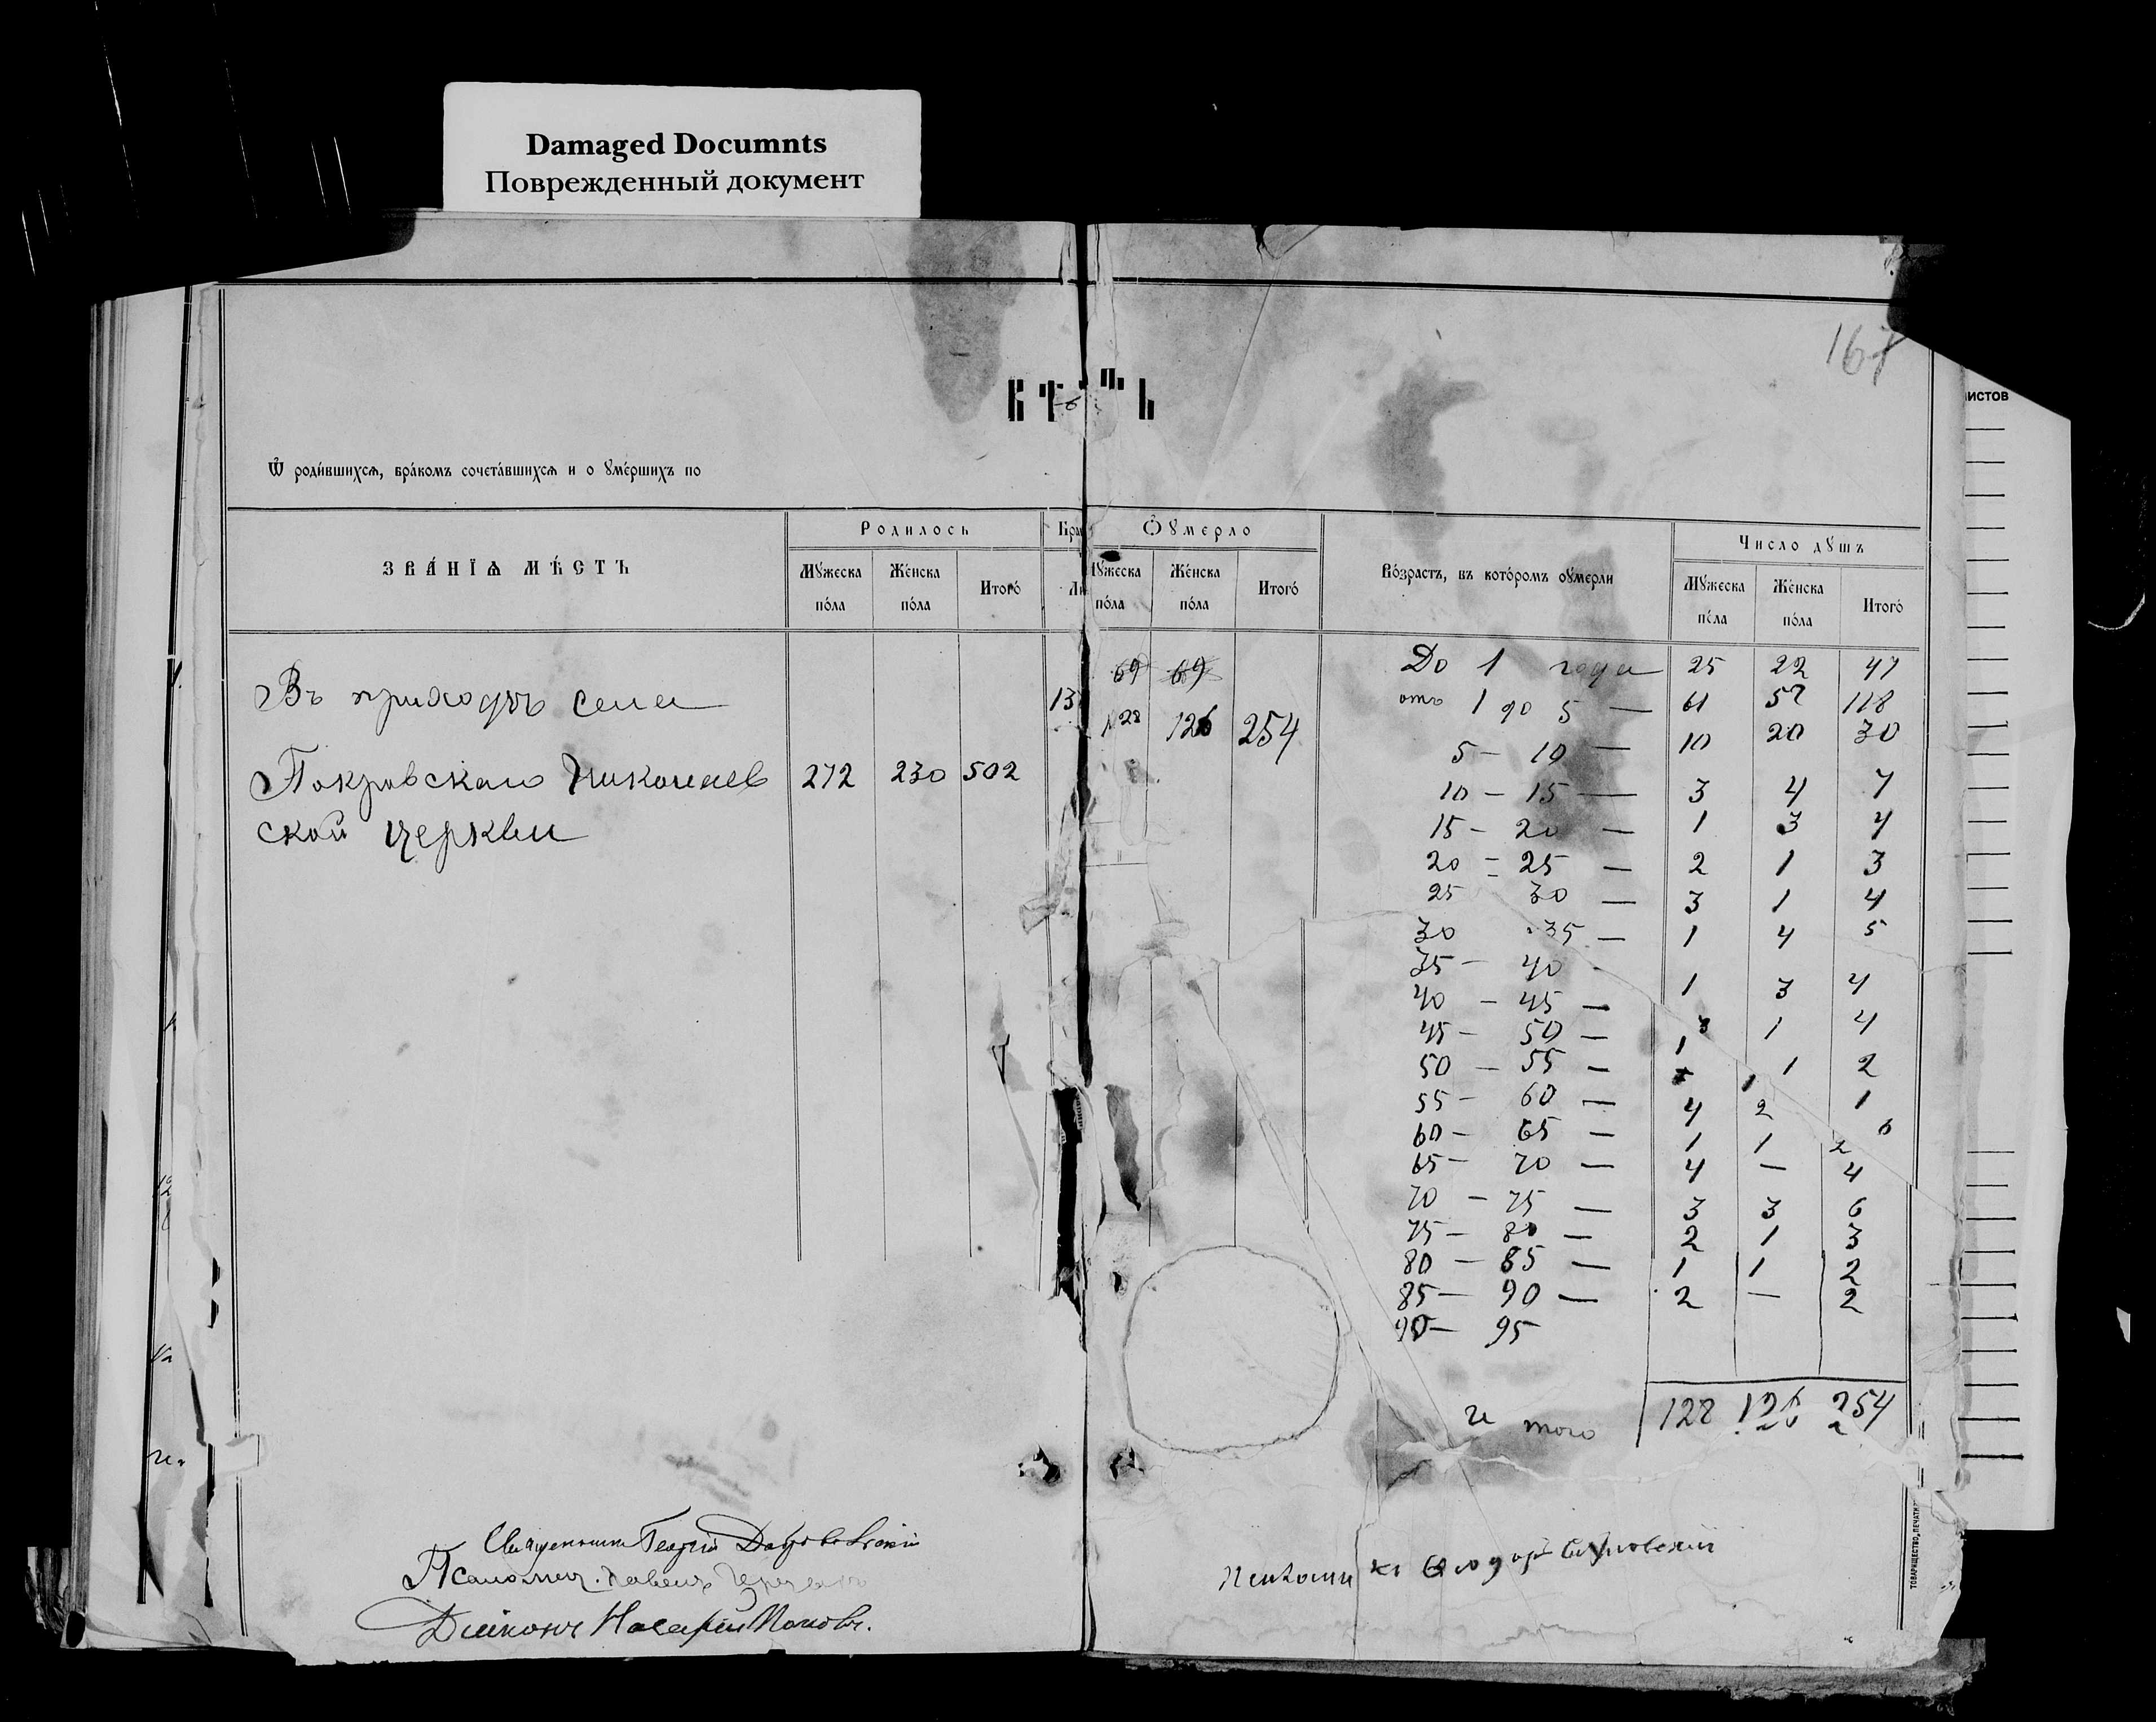 Damaged Documnts
Поврежденный документ
167
истов
Ѿ роди́вшихсѧ, бра́комъ сочета́вшихсѧ и о ᲂуме́ршихъ по
ЗВА́НІѦ МѢ́СТЪ
Родилось
Бра
Мꙋжеска по́ла
Же́нска по́ла
Итого́
Ѻумерло
Мꙋжеска по́ла
Же́нска по́ла
Итого́
Во́зрастъ, въ кото́ромъ оу́мерли
Число дꙋшъ
Мꙋжеска по́ла
Же́нска по́ла
Итого́
Въ приходѣ села
Покровскаго Николаев
ской церкви
272 230 502
13
69 69
128 126 254
До 1 года 25 22 47
отъ 1 до 5 — 61 57 118
5 — 10 — 10 20 30
10 — 15 — 3 4 7
15 — 20 — 1 3 4
20 — 25 — 2 1 3
25 30 — 3 1 4
30 35 — 1 4 5
35 — 40
40 — 45 — 1 3 4
45 — 50 — 3 1 4
50 — 55 — 1 1 2
55 — 60 — 1 1
60 — 65 — 4 2 6
65 — 70 — 1 1 2
70 — 75 — 4 — 4
75 — 80 — 3 3 6
80 — 85 — 2 1 3
85 — 90 — 1 1 2
90 — 95 2 — 2
Итого 128 126 254
Священникъ Георгій
Псаломщ. Павелъ
Діаконъ Назарій Поповъ.
Псаломщикъ Ѳеодоръ
ТОВАРИЩЕСТВО „ПЕЧАТН